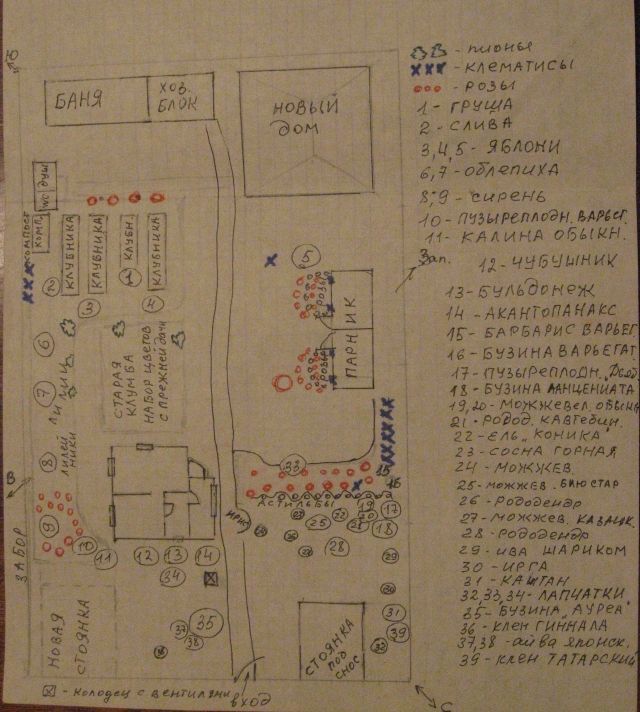 Ю
БАНЯ
ХОЗ.
БЛОК
НОВЫЙ
ДОМ
WC
ДУШ
КОМПОСТ
КОМП.
КЛУБНИКА
КЛУБНИКА
КЛУБН.
КЛУБНИКА
2
3
1
4
5
РОЗЫ
РОЗЫ
ПАРНИК
Зап.
6
7
8
9
ЛИЛИИ
ЛИЛЕЙ
НИКИ
СТАРАЯ
КЛУМБА
НАБОР ЦВЕТОВ
С ПРЕЖНЕЙ ДАЧИ
В
ЗАБОР
33
15
16
АСТИЛЬБЫ
ИРИС
19
20
17
18
21
22
25
28
10
11
12
13
14
34
35
37
38
29
30
31
39
32
НОВАЯ
СТОЯНКА
СТОЯНКА
ПОД
СНОС
ВХОД
С
- КОЛОДЕЦ С ВЕНТИЛЯМИ
- ПИОНЫ
- КЛЕМАТИСЫ
- РОЗЫ
1 - ГРУША
2 - СЛИВА
3,4,5 - ЯБЛОНИ
6,7 - ОБЛЕПИХА
8,9 - СИРЕНЬ
10 - ПУЗЫРЕПЛОДН. ВАРЬЕГ.
11 - КАЛИНА ОБЫКН.
12 - ЧУБУШНИК
13 - БУЛЬДОНЕЖ
14 - АКАНТОПАНАКС
15 - БАРБАРИС ВАРЬЕГ.
16 - БУЗИНА ВАРЬЕГАТ.
17 - ПУЗЫРЕПЛОДН.
18 - БУЗИНА ЛАНЦЕНИАТА
19,20 - МОЖЖЕВЕЛ. ОБЫКН
21 - РОДОД. КАВТЕБИН.
22 - ЕЛЬ "КОНИКА"
23 - СОСНА ГОРНАЯ
24 - МОЖЖЕВ.
25 - МОЖЖЕВ. БЛЮ СТАР
26 - РОДОДЕНДР
27 - МОЖЖЕВ. КАЗАЦК.
28 - РОДОДЕНДР
29 - ИВА ШАРИКОМ
30 - ИРГА
31 - КАШТАН
32,33,34 - ЛАПЧАТКИ
35 - БУЗИНА "АУРЕА"
36 - КЛЕН ГИННАЛА
37,38 - АЙВА ЯПОНСК.
39 - КЛЕН ТАТАРСКИЙ